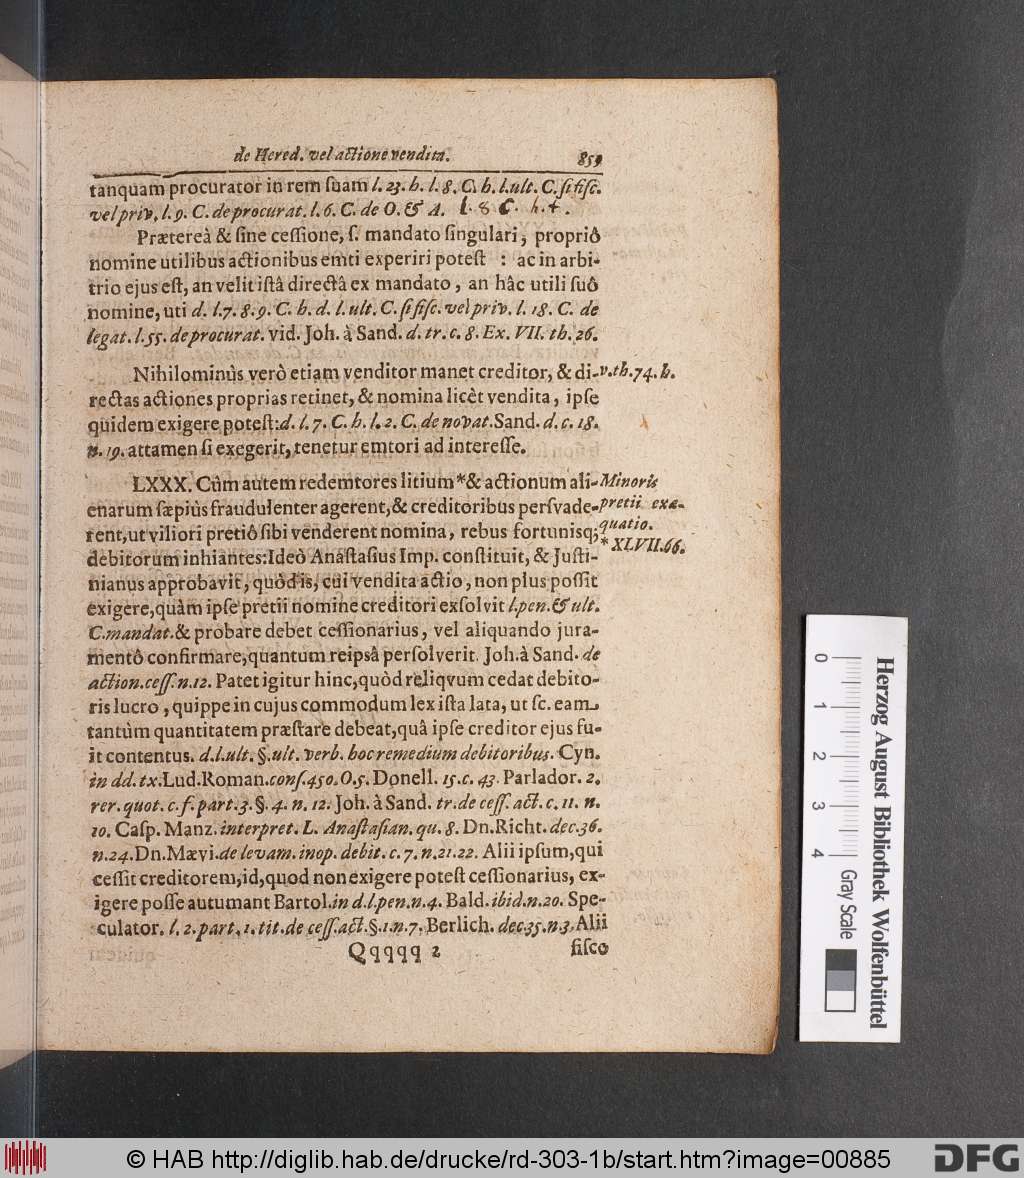 de Hered. vel actione vendita. 859
tanquam procurator in rem ſuam l. 23. h. l. 8. C. h. l. ult. C. ſi fiſc.
vel priv. l. 9. C. de procurat. l. 6. C. de O. & A. l. 8 C. h. t.
Prætereà & ſine ceſſione, ſ. mandato ſingulari, propriô
nomine utilibus actionibus emti experiri poteſt : ac in arbi-
trio ejus eſt, an velit iſtâ directâ ex mandato, an hâc utili ſuô
nomine, uti d. l. 7. 8. 9. C. h. d. l. ult. C. ſi fiſc. vel priv. l. 18. C. de
legat. l. 55. de procurat. vid. Joh. à Sand. d. tr. c. 8. Ex. VII. th. 26.
Nihilominùs verò etiam venditor manet creditor, & di-
v. th. 74. h.
rectas actiones proprias retinet, & nomina licèt vendita, ipſe
quidem exigere poteſt: d. l. 7. C. h. l. 2. C. de novat. Sand. d. c. 18.
n. 19. attamen ſi exegerit, tenetur emtori ad intereſſe.
LXXX. Cûm autem redemtores litium * & actionum ali-
Minoris
enarum ſæpiùs fraudulenter agerent, & creditoribus perſvade-
pretii exæ-
rent, ut viliori pretiô ſibi venderent nomina, rebus fortunisq;
quatio.
* XLVII. 66.
debitorum inhiantes: Ideò Anaſtaſius Imp. conſtituit, & Juſti-
nianus approbavit, quòd is, cui vendita actio, non plus poſſit
exigere, quàm ipſe pretii nomine creditori exſolvit l. pen. & ult.
C. mandat. & probare debet ceſſionarius, vel aliquando jura-
mentô confirmare, quantum reipsâ perſolverit. Joh. à Sand. de
action. ceſſ. n. 12. Patet igitur hinc, quòd reliqvum cedat debito-
ris lucro, quippe in cujus commodum lex iſta lata, ut ſc. eam
tantùm quantitatem præſtare debeat, quâ ipſe creditor ejus fu-
it contentus. d. l. ult. §. ult. verb. hoc remedium debitoribus. Cyn.
in dd. tx. Lud. Roman. conſ. 450. O. 5. Donell. 15. c. 43. Parlador. 2.
rer. quot. c. f. part. 3. §. 4. n. 12. Joh. à Sand. tr. de ceſſ. act. c. 11. n.
10. Caſp. Manz. interpret. L. Anaſtaſian. qu. 8. Dn. Richt. dec. 36.
n. 24. Dn. Mævi. de levam. inop. debit. c. 7. n. 21. 22. Alii ipſum, qui
ceſſit creditorem, id, quod non exigere poteſt ceſſionarius, ex-
igere poſſe autumant Bartol. in d. l. pen. n. 4. Bald. ibid. n. 20. Spe-
culator. l. 2. part. 1. tit. de ceſſ. act. §. 1. n. 7. Berlich. dec. 35. n. 3. Alii
Qqqqq 2 fiſco
0 1 2 3 4
Gray Scale
Herzog August Bibliothek Wolfenbüttel
© HAB http://diglib.hab.de/drucke/rd-303-1b/start.htm?image=00885
DFG